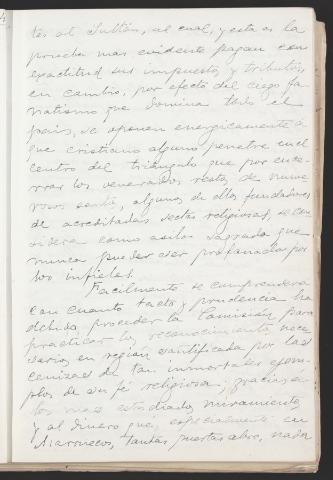 tos al Sultán, al cual, y esta es la
prueba mas evidente pagan con
exactitud sus impuestos y tributos,
en cambio, por efecto del ciego fa-
natismo que domina todo el
pais, se oponen energicamente á
que cristiano alguno penetre en el
centro del triángulo que por ence-
rrar los venerados restos de nume
rosos santos, algunos de ellos fundadores
de acreditadas sectas religiosas, se con
sidera como asilo sagrado que
nunca puede ser profanado por
los infieles.
Facilmente se comprenderá
con cuanto tacto y prudencia ha
debido proceder la Comisión para
practicar los reconocimientos nece
sarios en region santificada por las
cenizas de tan inmortales ejem-
plos de su fé religiosa; gracias á
los mas estudiados miramientos
y al dinero que, especialmente en
Marruecos, tantas puertas abre, nada